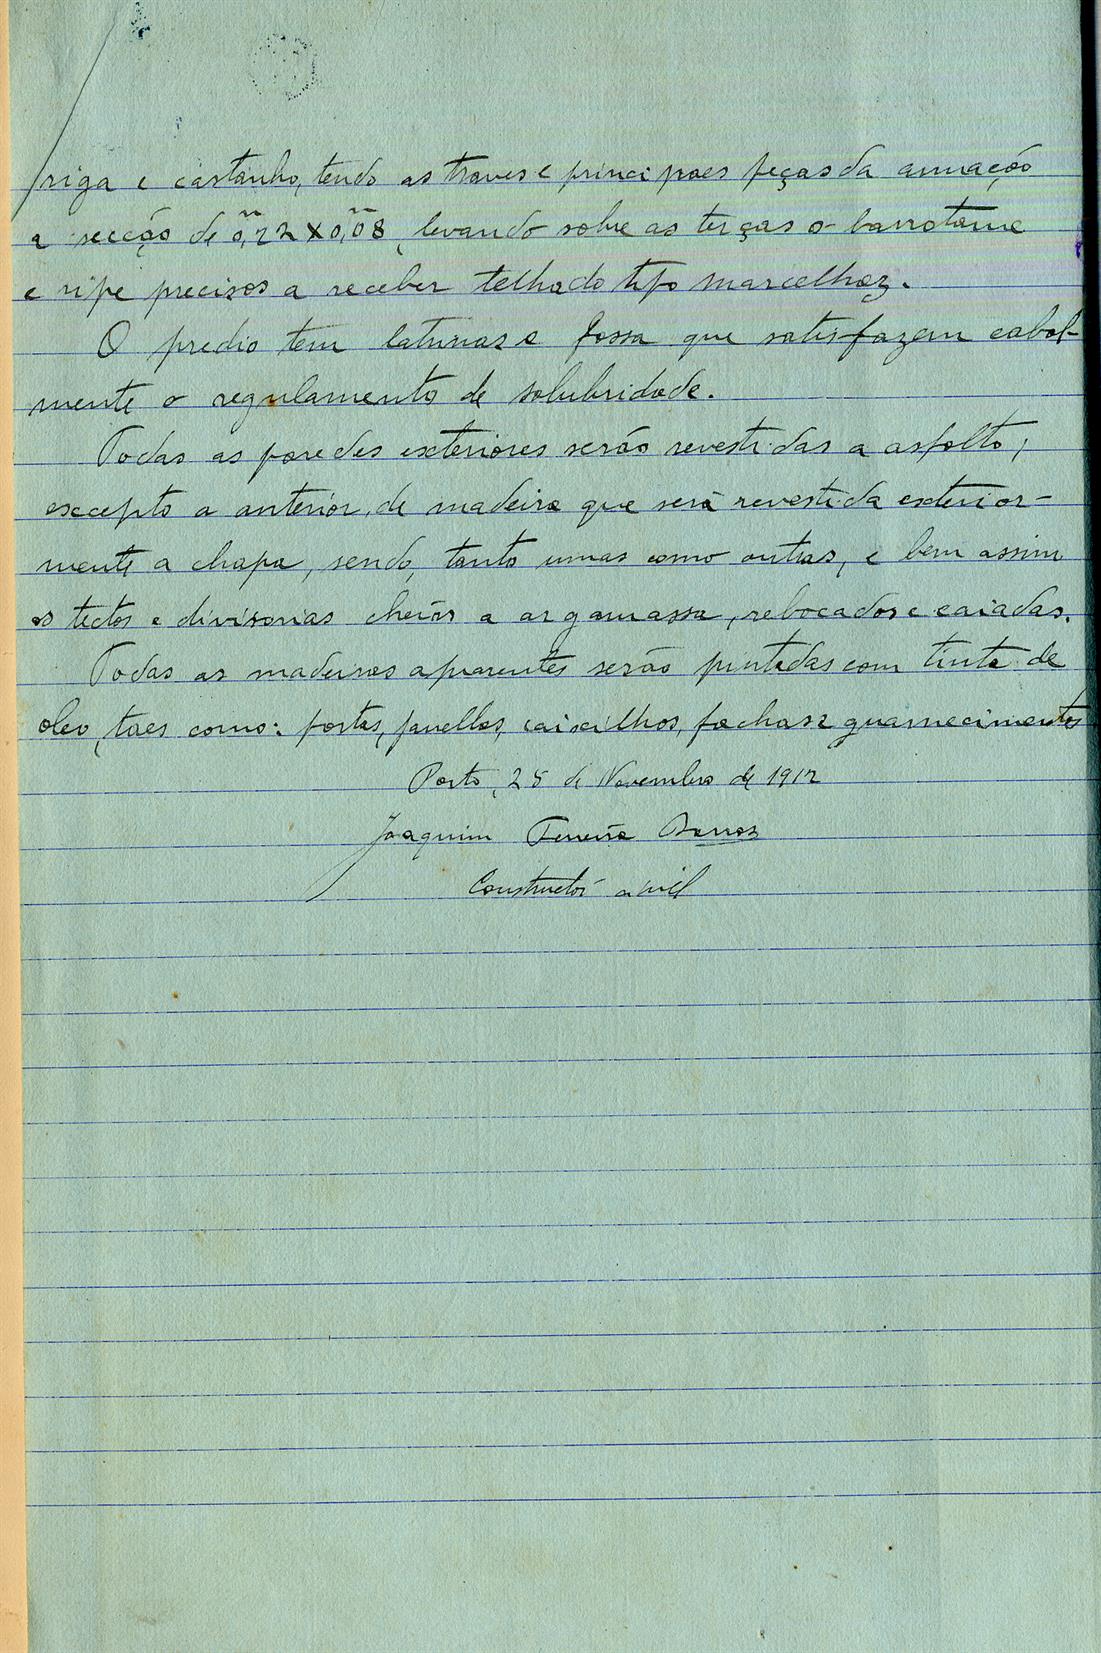 riga e castanho, tendo as traves e principaes peças da armação
a secção de 0,22 x 0,08, levando sobre as terças o barrotame
e ripe precisos a receber telhado typo marcelhez.
O predio tem latrinas e fossa que satisfazem cabal-
mente o regulamento de salubridade.
Todas as paredes exteriores serão revestidas a asfalto,
excepto a anterior, de madeira que será revestida exterior-
mente a chapa, sendo, tanto umas como outras, e bem assim
os tectos e divisorias cheios a argamassa, rebocados e caiadas.
Todas as madeiras aparentes serão pintadas com tinta de
oleo, taes como: portas, janellas, caixilhos, fachas e guarnecimentos
Porto, 25 de Novembro de 1912
Joaquim Ferreira Barros
Constructor civil